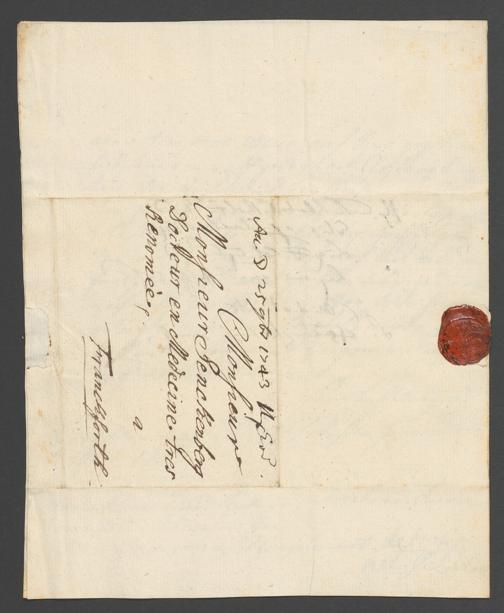 25 1743
Monsieur
Monsieur Senckenberg
Docteur en Medecine tres
Renomée,
a
Franckforth